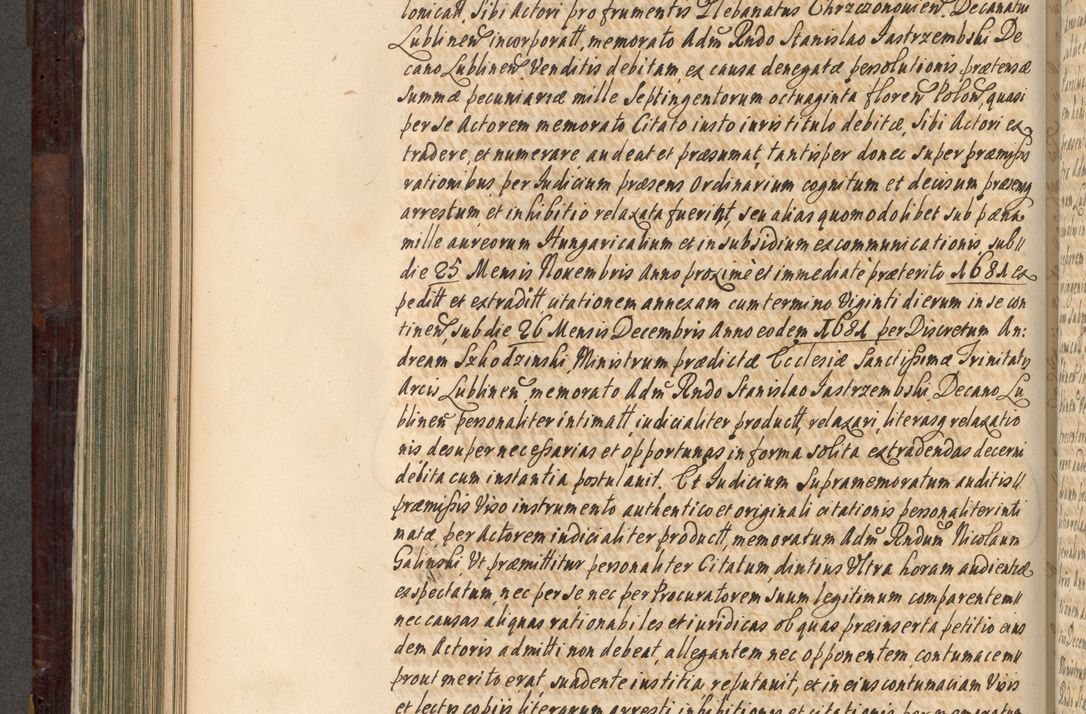 lonicatt, Sibi Actori pro frumentis Plebanatus Chrzczonovien. Decanatui
Lublinen incorporatt, memorato Adm Rndo Stanislao Jastrzembski De
cano Lublinen Venditis debitam, ex causa denegatæ persolutionis prætensæ
Summæ pecuniariæ mille Septingentorum octuaginta floren Polon, quasi
per se Actorem memorato Citato iusto iuris titulo debitæ, Sibi Actori ex
tradere, et numerare audeat et præsumat, tantisper donec super præmissis
rationibus per Judicium præsens Ordinarium cognitum et decisum præsensq
arrestum et inhibitio relaxata fuerint, seu alias quomodolibet sub pæna
mille aureorum Hungaricalium et in subsidium excommunicationis sub
die 25 Mensis Novembris Anno proximè et immediatè præterito 1681 ex
peditt et extraditt citationem annexam cum termino Viginti dierum in se con
tinen, sub die 26 Mensis Decembris Anno eodem 1681 per Discretum An:
dream Szkodzinski Ministrum prædictæ Ecclesiæ Sanctissimæ Trinitatis
Arcis Lublinen, memorato Adm Rndo Stanislao Jastrzembski Decano Lu
blinen personaliter intimatt iudicialiter productt, relaxari, literasq relaxatio
nis desuper necessarias et opportunas in forma solita extradendas decerni
debita cum instantia postulavit. Et Judicium Supramemoratum auditis
præmissis Viso instrumento authentico et originali citationis personaliter inti
matæ, per Actorem iudicialiter productt, memoratum Adm Rndum Nicolaum
Galinski Ut præmittitur personaliter Citatum, diutius Ultra horam audientiæ
expectatum, nec per se nec per Procuratorem suum legitimum comparentem
nec causas aliquas rationabiles et iuridicas ob quas præinserta petitio eius
dem Actoris admitti non debeat, allegantem nec opponentem, contumacem
prout merito erat suadente iustitia reputavit, et in eius contumaciam Visis
et lectis copiis literarum arresti inhibitionis et citationis per memoratum